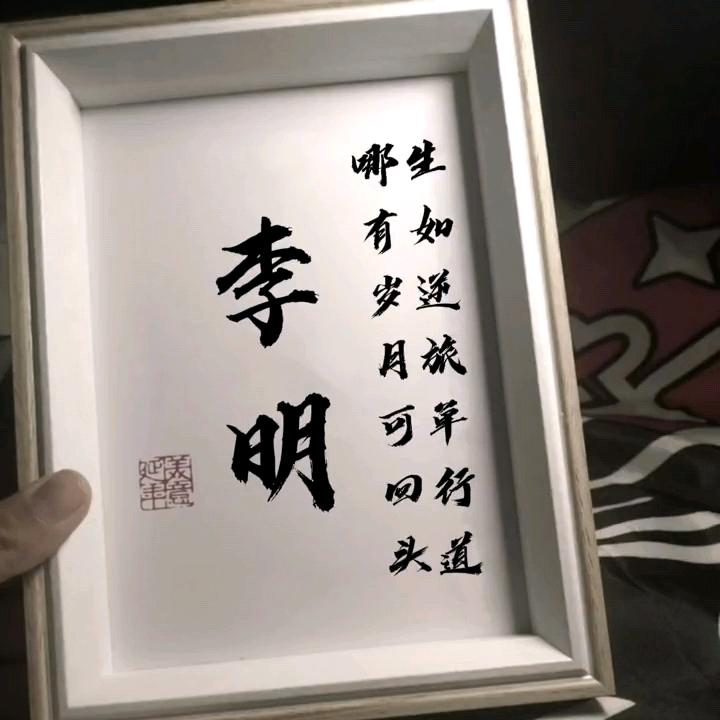 生如逆旅单行道
哪有岁月可回头
李明
美意延年